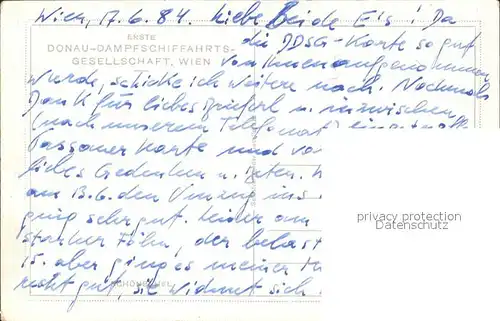 Wien, 17.6.84. Liebe Beide E's! Da
ERSTE
DONAU-DAMPFSCHIFFAHRTS-
GESELLSCHAFT, WIEN
die DDSG-Karte so gut
von Ihnen aufgenommen
wurde, schicke ich weitere nach. Nochmals
Dank für liebes Brieferl u. inzwischen
(nach unserem Telefonat)
Passauer Karte und
liebes Gedenken u.
am 13.6. den Umzug ins
ging sehr gut. Leider am
starker Föhn, der
15. aber ging es meiner
recht gut, sie widmet sich
privacy protection
Datenschutz